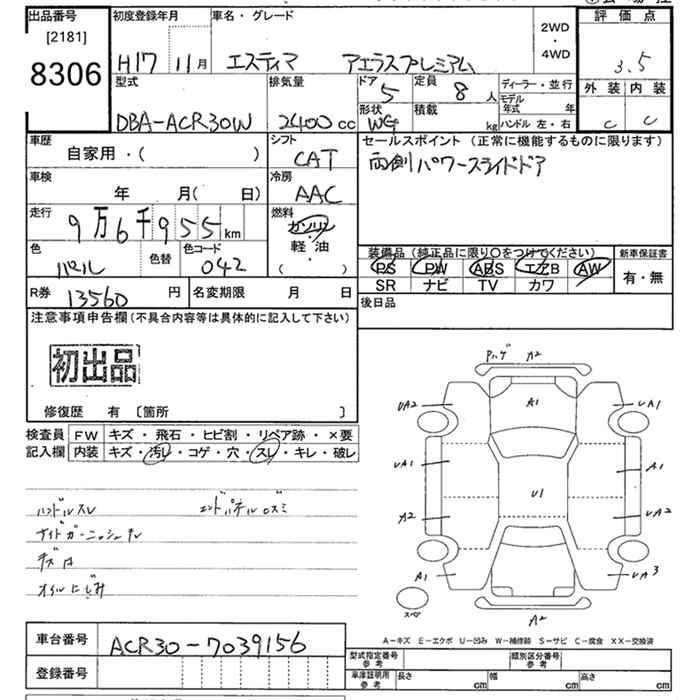 出品番号 初度登録年月 車名・グレード 評価点
[2181]
8306
H17 11月 エスティマ アエラスプレミアム 2WD・4WD 3.5
型式 排気量 ドア 5 定員 8人 ディーラー・並行 外装 内装
DBA-ACR30W 2400cc 形状 WG 積載 kg モデル年式 年 ハンドル 左・右 C C
車歴 シフト セールスポイント (正常に機能するものに限ります)
自家用・( ) CAT 両側パワースライドドア
車検 冷房
年 月( 日) AAC
走行 燃料
9万6千955km ガソリン
軽・油
( )
色 色替 色コード 装備品 (純正品に限り〇をつけてください) 新車保証書
パール 042 PS PW ABS エアB AW 有・無
SR ナビ TV カワ
R券 13560円 名変期限 月 日 後日品
注意事項申告欄 (不具合内容等は具体的に記入して下さい)
初出品
修復歴 有 〔箇所 〕
検査員 FW キズ・飛石・ヒビ割・リペア跡・×要
記入欄 内装 キズ・汚レ・コゲ・穴・スレ・キレ・破レ
ハンドルスレ エンドパネルロズミ
サイドガーニッシュナレ
キズ
オイルにじみ
A2
A1
UA2 UA1
UA1 A1
U1
A2 UA2
A1 UA3
スペア A2
A-キズ E-エクボ U-凹み W-補修跡 S-サビ C-腐食 XX-交換済
車台番号 ACR30-7039156
型式指定番号 参考 類別区分番号 参考
登録番号
車庫証明用 参考 長さ cm 幅 cm 高さ cm